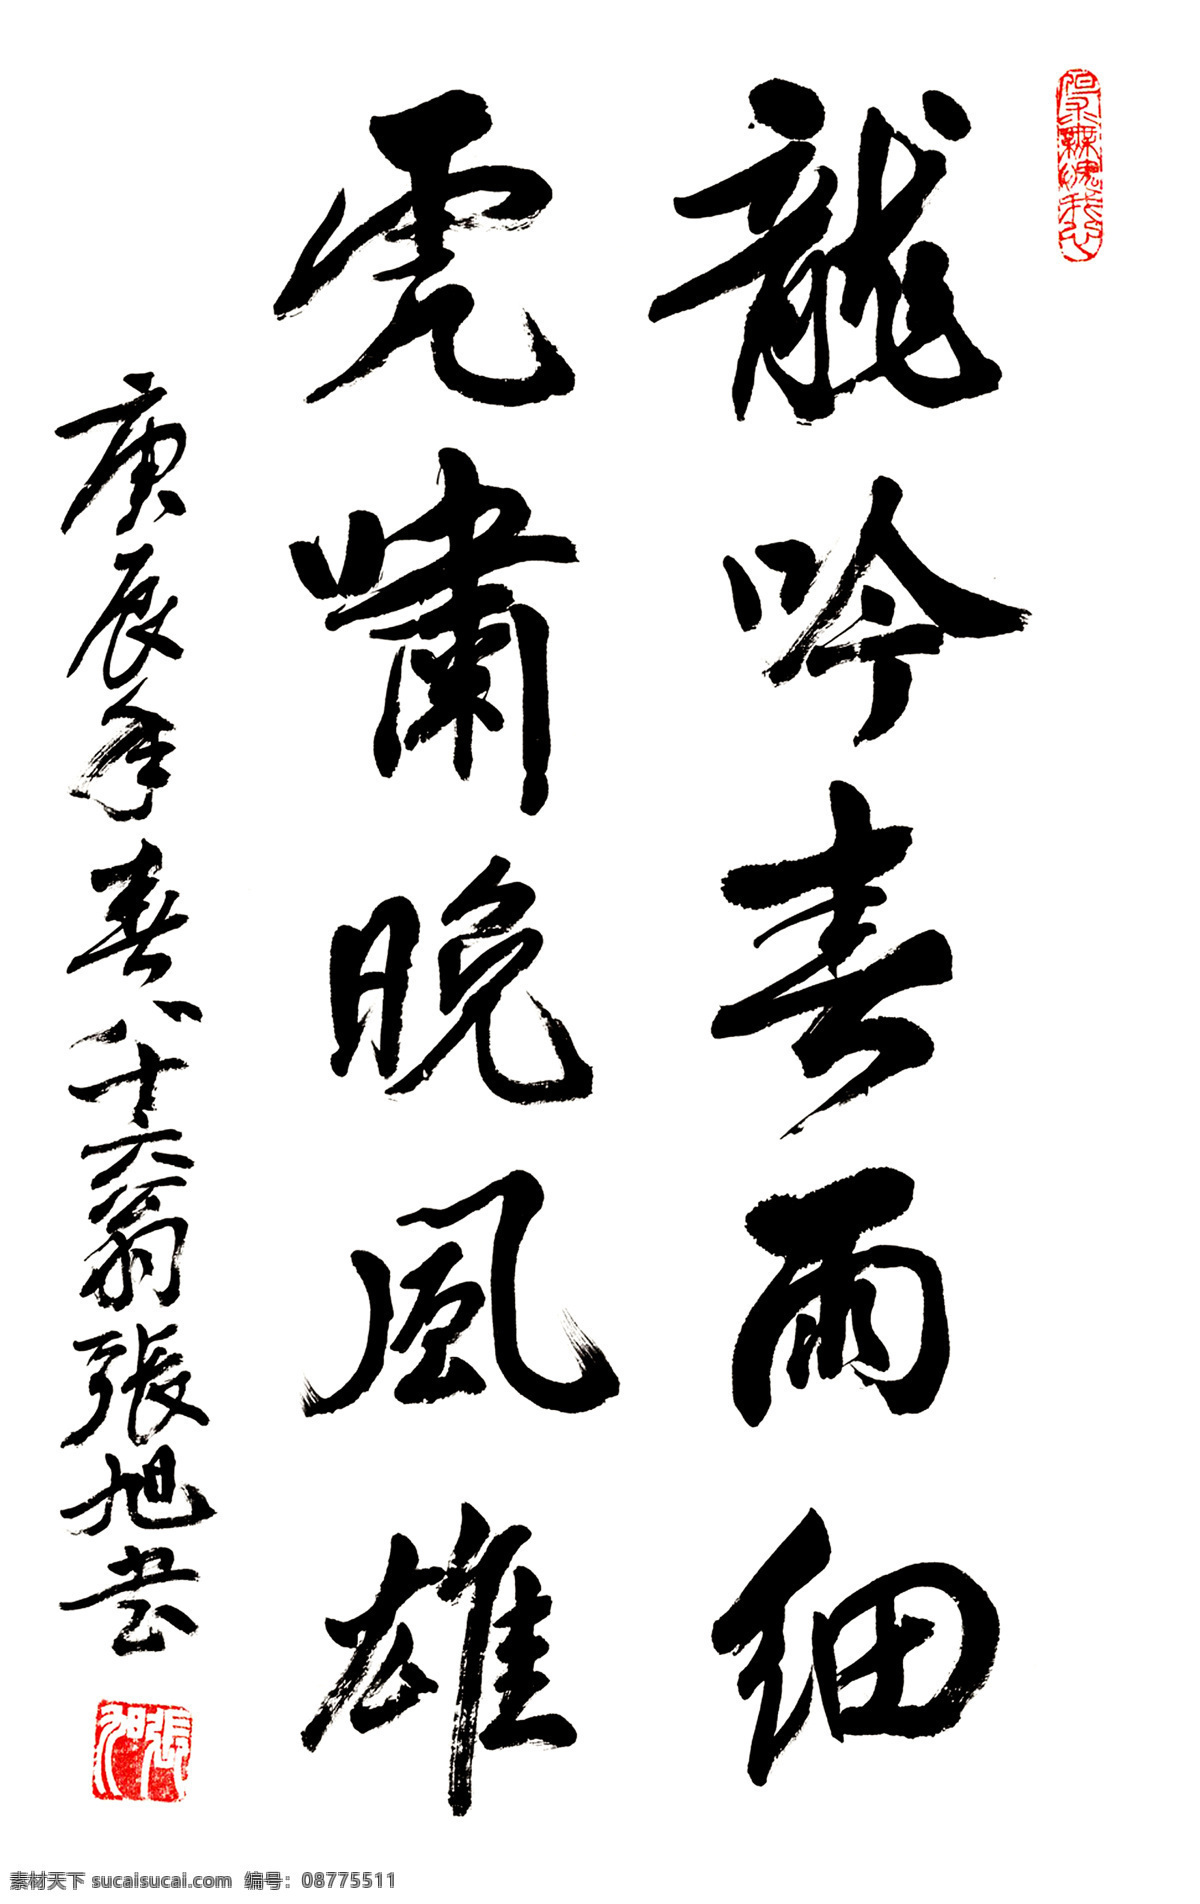 龍吟春雨細
虎嘯晚風雄
庚辰年春八十六翁張旭书
張旭
素材天下 sucaisucai.com 编号：08775511